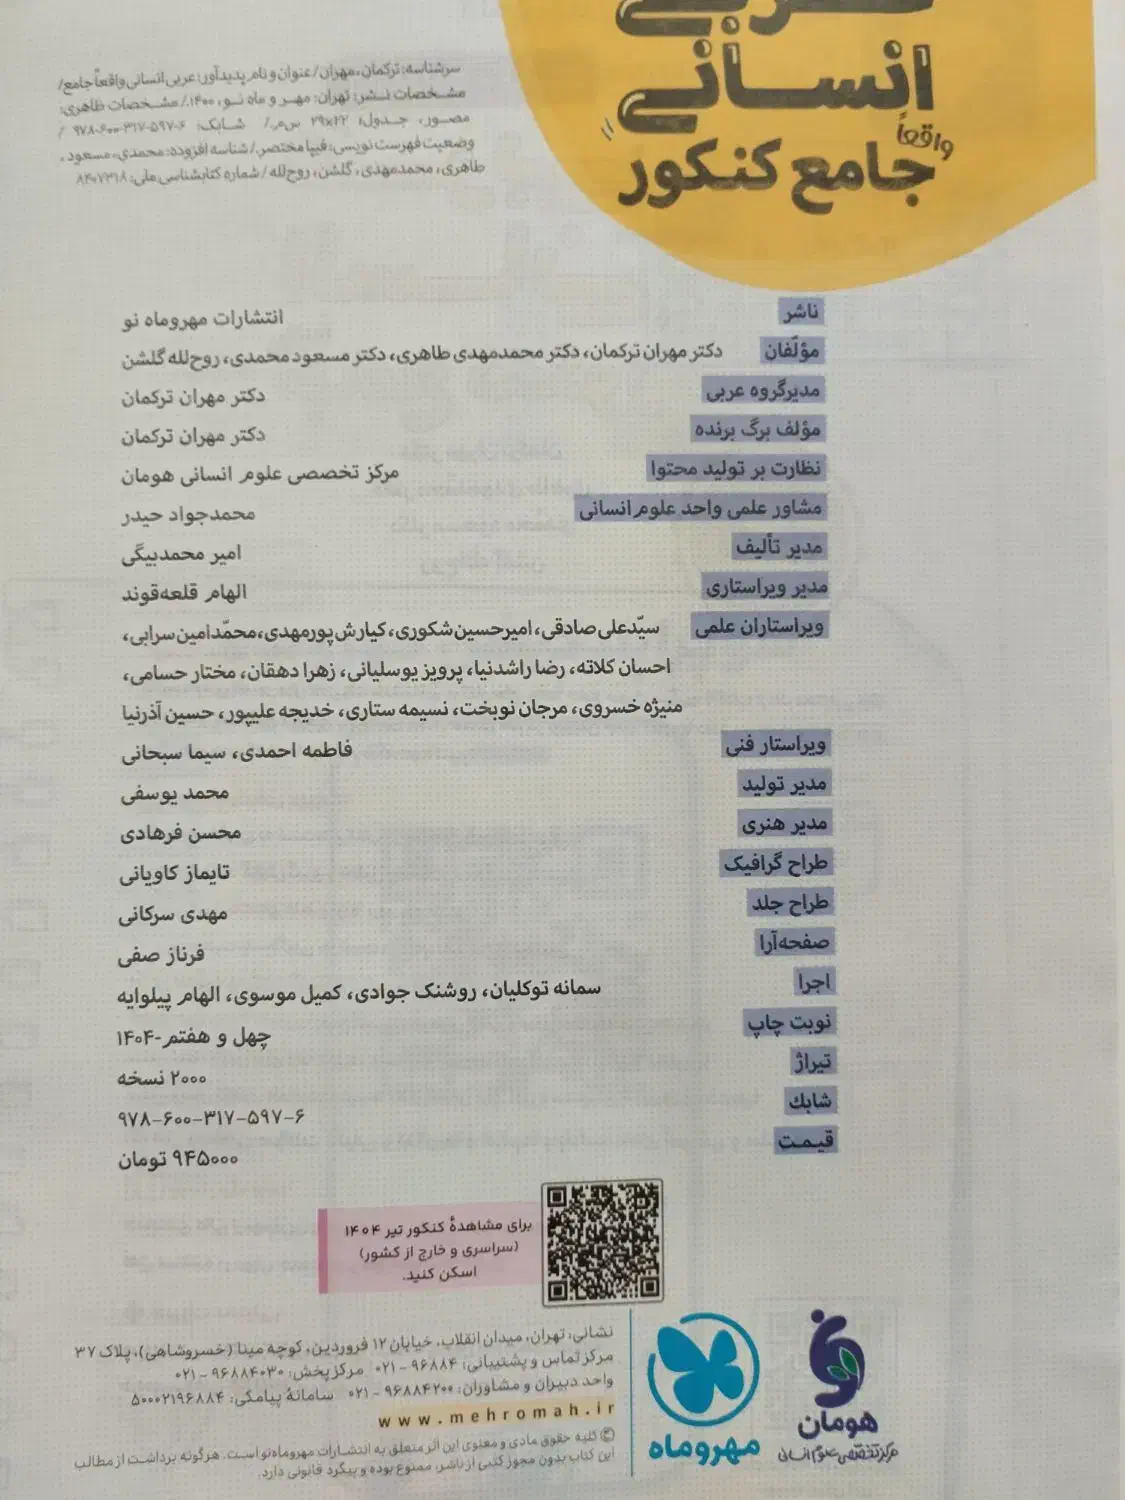 عربی
انسانی
واقعاً
جامع کنکور
سرشناسه: ترکمان، مهران/ عنوان و نام پدیدآور: عربی انسانی واقعاً جامع/
مشخصات نشر: تهران: مهر و ماه نو، ۱۴۰۰./ مشخصات ظاهری:
مصور، جدول؛ ۲۲×۲۹ س‌م./ شابک: ۶-۵۹۷-۳۱۷-۶۰۰-۹۷۸ /
وضعیت فهرست نویسی: فیپا مختصر./ شناسه افزوده: محمدی، مسعود،
طاهری، محمدمهدی، گلشن، روح‌لله / شماره کتابشناسی ملی: ۸۴۰۷۳۱۸
ناشر انتشارات مهروماه نو
مؤلّفان دکتر مهران ترکمان، دکتر محمدمهدی طاهری، دکتر مسعود محمدی، روح‌لله گلشن
مدیرگروه عربی دکتر مهران ترکمان
مؤلف برگ برنده دکتر مهران ترکمان
نظارت بر تولید محتوا مرکز تخصصی علوم انسانی هومان
مشاور علمی واحد علوم انسانی محمدجواد حیدر
مدیر تألیف امیر محمدبیگی
مدیر ویراستاری الهام قلعه‌قوند
ویراستاران علمی سیّدعلی صادقی، امیرحسین شکوری، کیارش پورمهدی، محمّدامین سرابی،
احسان کلاته، رضا راشدنیا، پرویز یوسلیانی، زهرا دهقان، مختار حسامی،
منیژه خسروی، مرجان نوبخت، نسیمه ستاری، خدیجه علیپور، حسین آذرنیا
ویراستار فنی فاطمه احمدی، سیما سبحانی
مدیر تولید محمد یوسفی
مدیر هنری محسن فرهادی
طراح گرافیک تایماز کاویانی
طراح جلد مهدی سرکانی
صفحه‌آرا فرناز صفی
اجرا سمانه توکلیان، روشنک جوادی، کمیل موسوی، الهام پیلوایه
نوبت چاپ چهل و هفتم-۱۴۰۴
تیراژ ۲۰۰۰ نسخه
شابك ۹۷۸-۶۰۰-۳۱۷-۵۹۷-۶
قیمت ۹۴۵۰۰۰ تومان
برای مشاهدهٔ کنکور تیر ۱۴۰۴
(سراسری و خارج از کشور)
اسکن کنید.
نشانی: تهران، میدان انقلاب، خیابان ۱۲ فروردین، کوچه مینا (خسروشاهی)، پلاک ۳۷
مرکز تماس و پشتیبانی: ۹۶۸۸۴ - ۰۲۱ مرکز پخش: ۹۶۸۸۴۰۳۰ - ۰۲۱
واحد دبیران و مشاوران: ۹۶۸۸۴۲۰۰ - ۰۲۱ سامانهٔ پیامکی: ۵۰۰۰۲۱۹۶۸۸۴
www.mehromah.ir
© کلیه حقوق مادی و معنوی این اثر متعلق به انتشارات مهروماه‌نو است. هرگونه برداشت از مطالب
این کتاب بدون مجوز کتبی از ناشر، ممنوع بوده و پیگرد قانونی دارد.
مهروماه
هومان
مرکز تخصّصی علوم انسانی